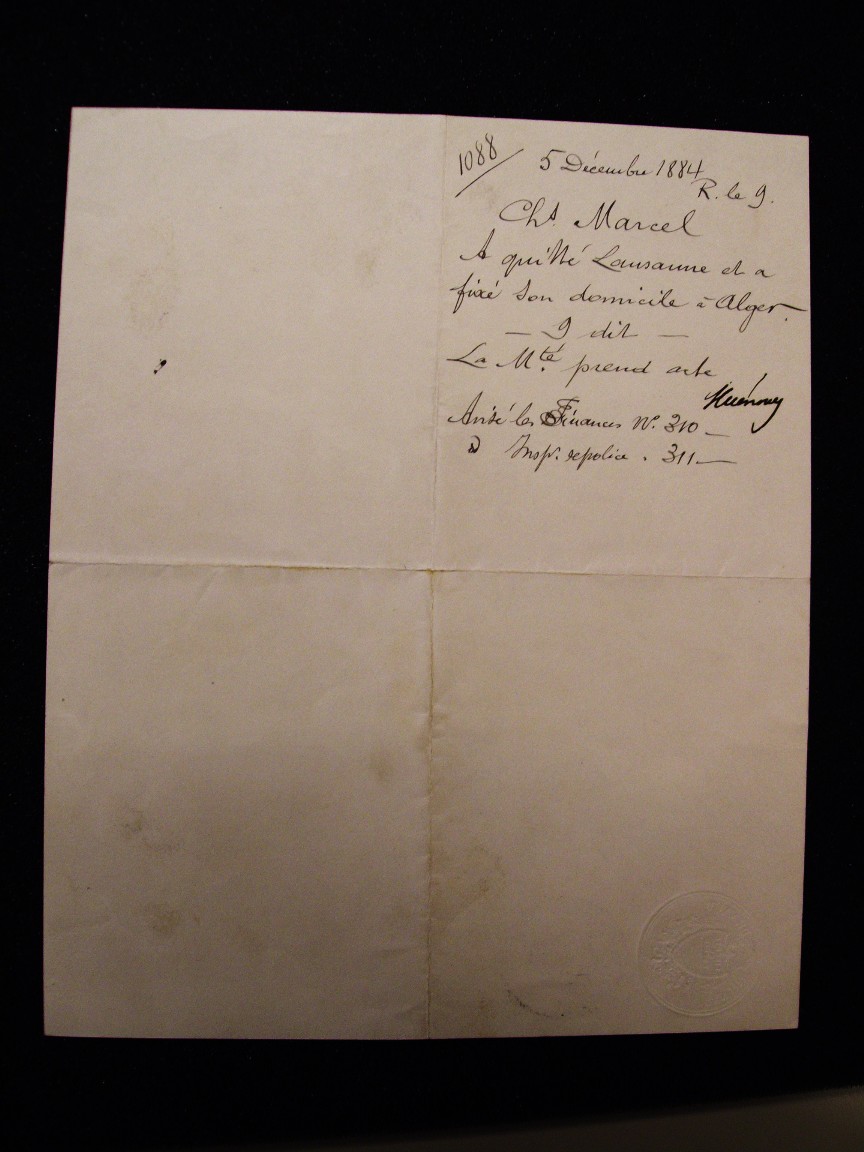 1088
5 Décembre 1884
R. le 9.
Ch.s Marcel
A quitté Lausanne et a
fixé son domicile à Alger.
— 9 dit —
La M.té prend acte
Avisé les Finances N.° 310 —
d Insp.r de police . 311 —